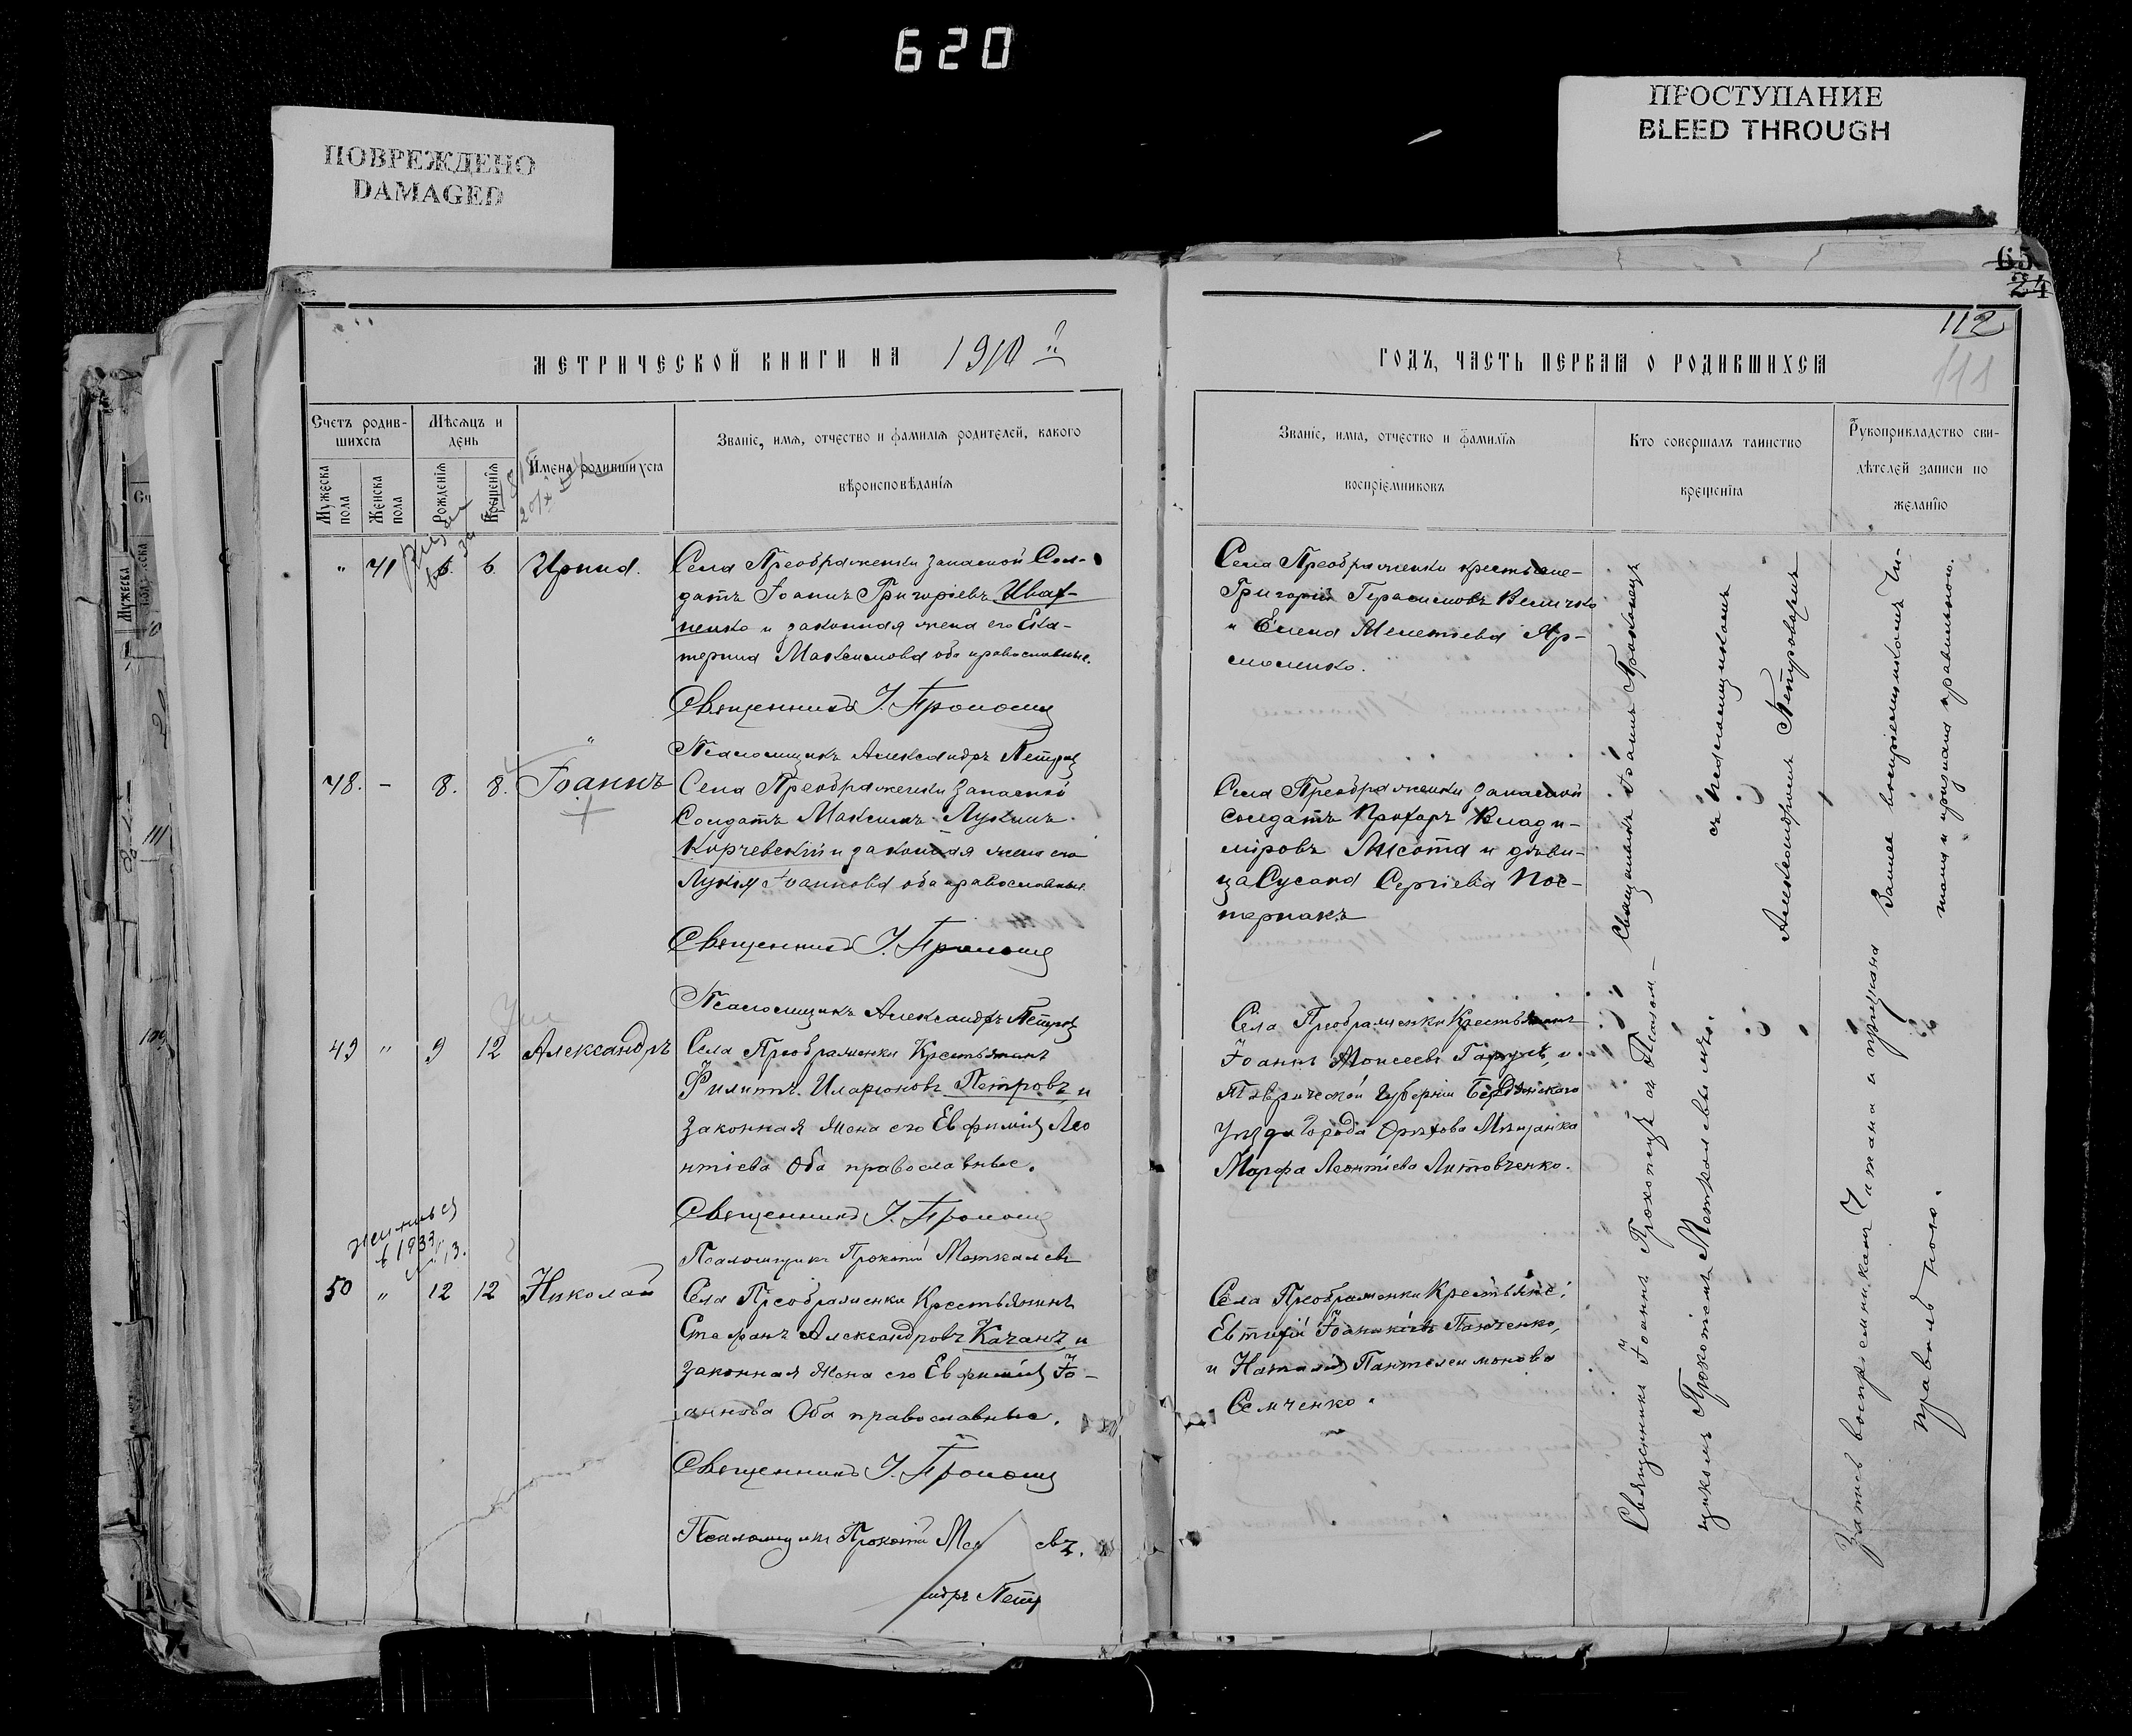 620
ПОВРЕЖДЕНО
DAMAGED
ПРОСТУПАНИЕ
BLEED THROUGH
65
24
112
111
МЕТРИЧЕСКОЙ КНИГИ НА 1910 й
ГОДЪ, ЧАСТЬ ПЕРВАЯ О РОДИВШИХСЯ
Счетъ родив-
шихся
Мѣсяцъ и
день
Имена родившихся
Мужеска
пола
Женска
пола
Рожденія
Крещенія
Званіе, имя, отчество и фамилія родителей, какого
вѣроисповѣданія
Званіе, имя, отчество и фамилія
воспріемниковъ
Кто совершалъ таинство
крещенія
Рукоприкладство сви-
дѣтелей записи по
желанію
" 41 6. 6. Ирина.
Села Преображенки запасной Сол-
датъ Іоаннъ Григоріевъ Ивах-
ненко и законная жена его Ека-
терина Максимова оба православные.
Священникъ І. Прокопецъ
Псаломщикъ Александръ Петров
Села Преображенки крестьяне
Григорій Герасимовъ Величко
и Елена Мелетіева Яр-
моленко.
48. - 8. 8. Іоаннъ
Села Преображенки запасной
Солдатъ Максимъ Лукинъ
Корчевскій и законная жена его
Лукія Іоаннова оба православные.
Священникъ І. Прокопецъ
Псаломщикъ Александръ Петров
Села Преображенки запасной
солдатъ Прохоръ Влади-
міровъ Лисота и дѣви-
ца Сусана Сергіева Пос-
тернакъ
49 " 9 12 Александръ
Села Преображенки Крестьянинъ
Филиппъ Иларіоновъ Петровъ и
законная жена его Евфимія Лео
нтіева Оба православные.
Священникъ І. Прокопецъ
Псаломщикъ Прокопій Меткалевъ
Села Преображенки Крестьянинъ
Іоаннъ Моисеевъ и
Таврической губерніи Бердянского
Уѣзда Города Орѣхова Мѣщанка
Марфа Леонтіева Литовченко.
женился
в 1933
13.
50 " 12 12 Николай
Села Преображенки Крестьянинъ
Стефанъ Александровъ Качанъ и
законная жена его Евфимія Іо-
аннова Оба православные.
Священникъ І. Прокопецъ
Псаломщикъ Прокопій Ме евъ.
ндръ Петр
Села Преображенки Крестьяне:
Евтихій Панченко,
и Наталія Пантелеимонова
Семченко.
Священникъ Іоаннъ Прокопецъ
съ псаломщикомъ
Александромъ Петровымъ
Священникъ Іоаннъ Прокопецъ съ Псалом-
щикомъ Прокопіемъ Меткалевымъ.
Запись воспріемникамъ Чи-
тана и признана правильною.
Запись воспріемникамъ Читана и признана
правильною.